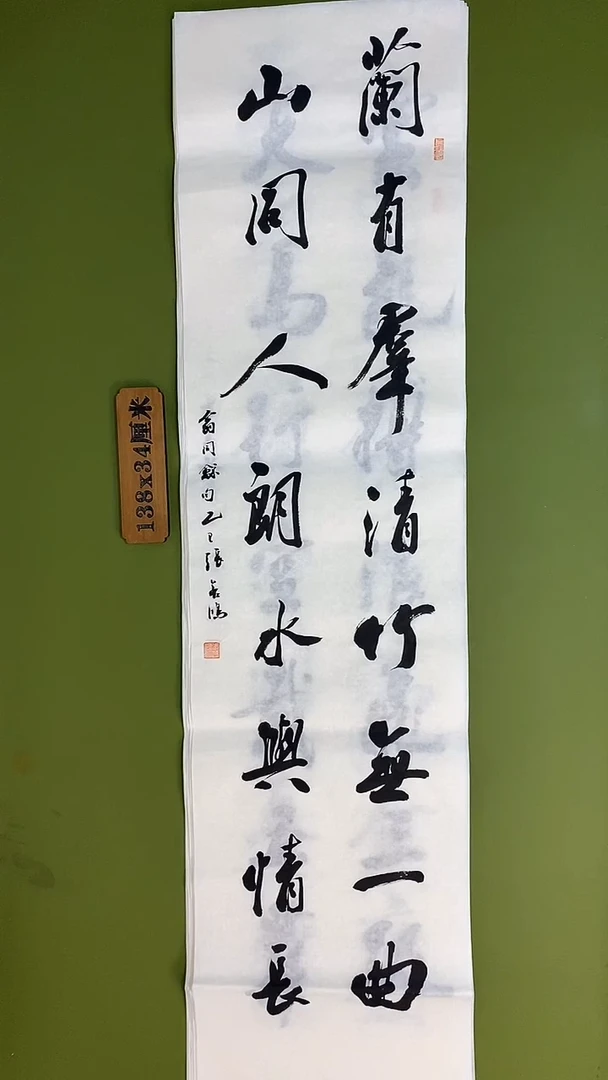 蘭有羣清竹無一曲
山同人朗水與情長
翁同龢句乙巳張善鴻
138x34厘米